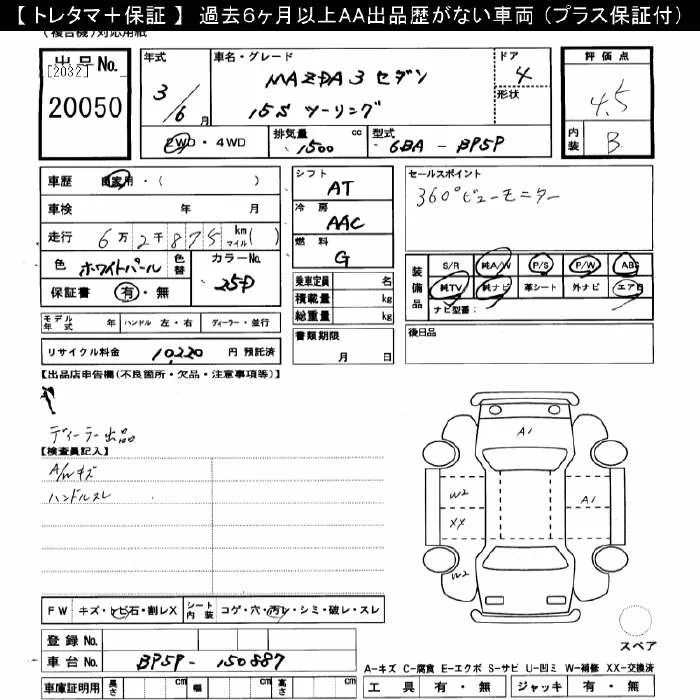 【 トレタマ＋保証 】 過去6ヶ月以上AA出品歴がない車両 (プラス保証付)
(複合機)対応用紙
出品No.
[2032]
20050
年式
3/6月
車名・グレード
MAZDA3 セダン
15S ツーリング
ドア
4
形状
評価点
4.5
内装
B
2WD・4WD
排気量
1500
cc
型式
6BA - BP5P
車歴 自家用・( )
車検 年 月
走行 6万2千875 km マイル( )
色 ホワイトパール
色替
カラーNo.
25D
保証書 有・無
シフト
AT
冷房
AAC
燃料
G
セールスポイント
360°ビューモニター
装備品
S/R 純A/W P/S P/W ABS
純TV 純ナビ 革シート 外ナビ エアB
ナビ型番:
乗車定員 名
積載量 kg
総重量 kg
モデル年式 年 ハンドル 左・右 ディーラー・並行
リサイクル料金 10,220 円 預託済
書類期限
月 日
後日品
【出品店申告欄(不良箇所・欠品・注意事項等)】
ディーラー出品
【検査員記入】
A/Wキズ
ハンドルスレ
A1
W2
XX
A1
W2
FW キズ・トビ石・割レX
シート内装 コゲ・穴・汚レ・シミ・破レ・スレ
スペア
登録No.
車台No. BP5P - 150887
A-キズ C-腐食 E-エクボ S-サビ U-凹ミ W-補修 XX-交換済
車庫証明用 長さ cm 幅 cm 高さ cm
工具 有・無 ジャッキ 有・無